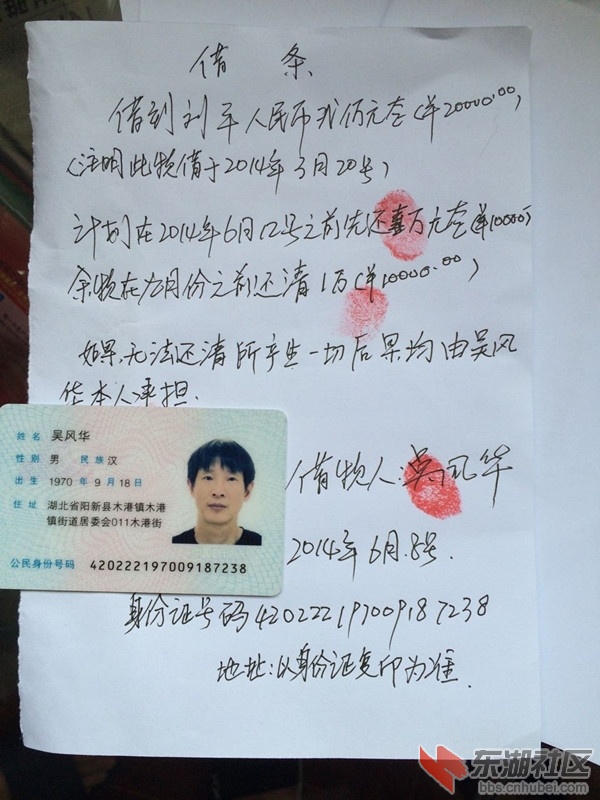 借条
借到刘平人民币贰万元整(¥20000.00)
(注明此款借于2014年3月20号)
计划在2014年6月12号之前先还壹万元整(¥10000)
余款在12月份之前还清1万(¥10000.00)
如果无法还清所产生一切后果均由吴风
华本人承担.
借款人:吴风华
2014年6月.8号.
身份证号码420222197009187238
地址:以身份证复印为准.
姓名 吴风华
性别 男 民族 汉
出生 1970 年 9 月 18 日
住址 湖北省阳新县木港镇木港
镇街道居委会011木港街
公民身份号码 420222197009187238
东湖社区
bbs.cnhubei.com